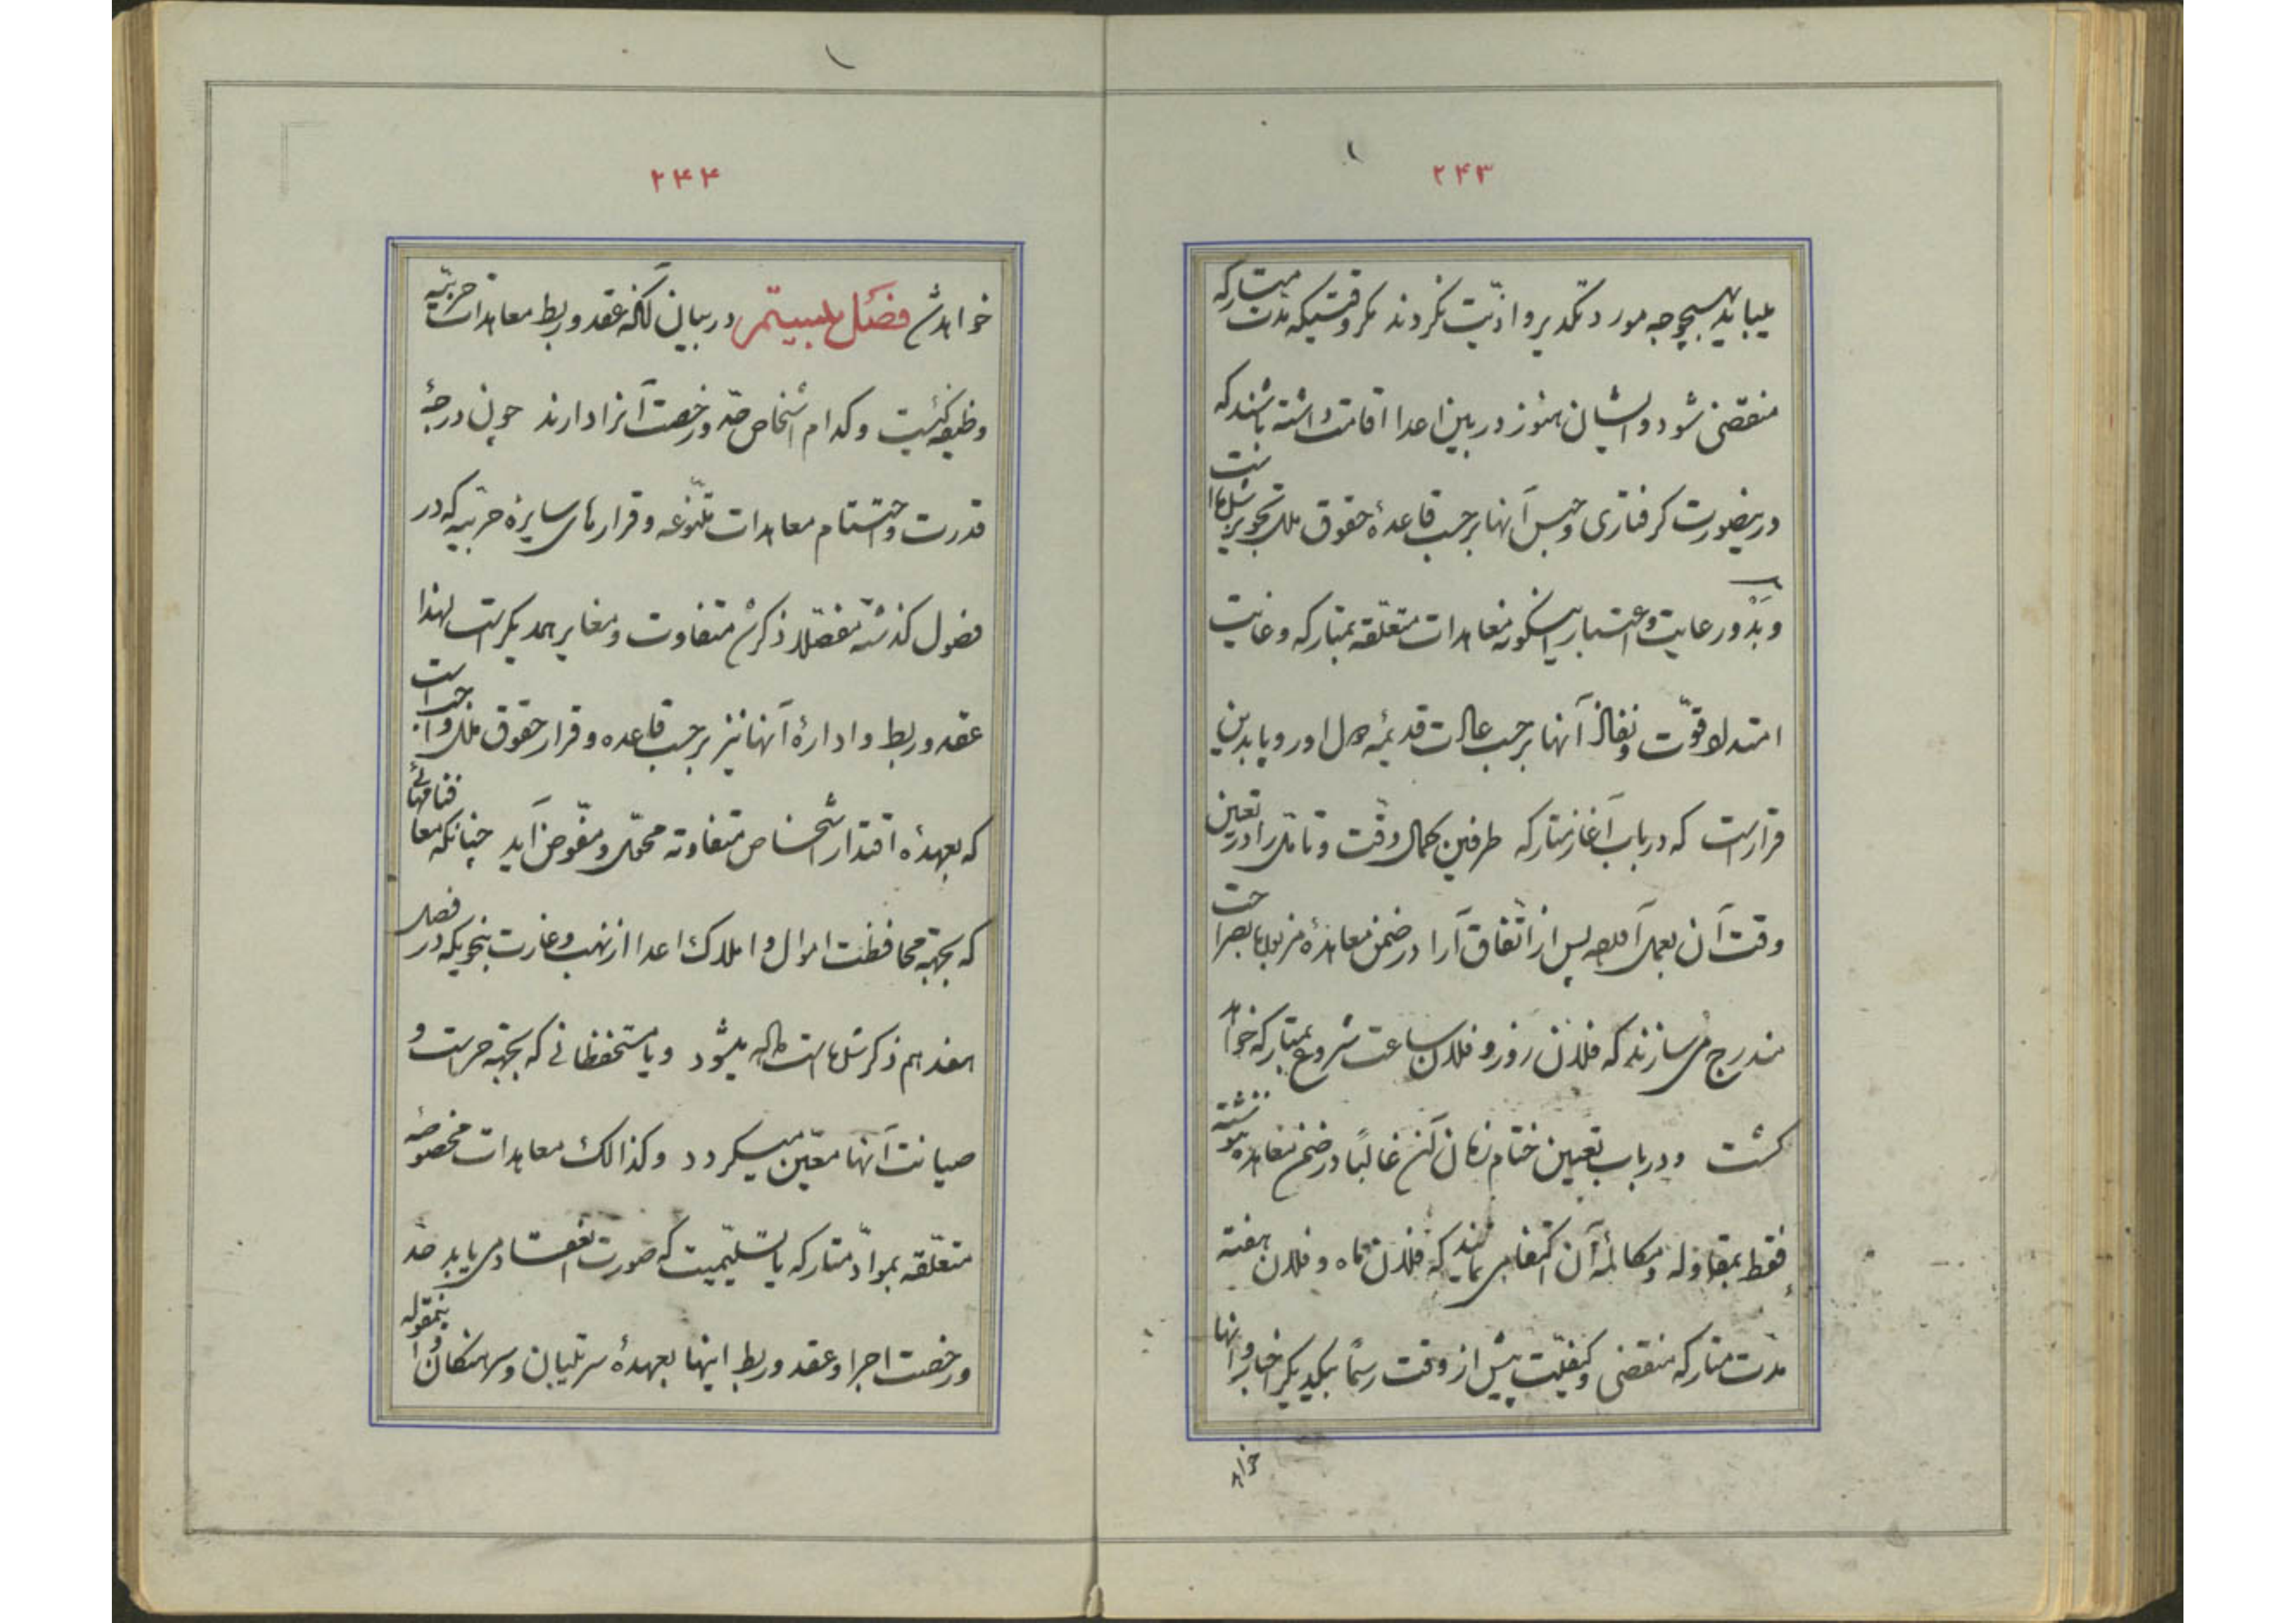 ۲۴۳
میباید بهیچوجه مورد تکدیر و اذیّت نکردند مکر وقتیکه مدّت متارکه
منقضی شود و ایشان هنوز در بین اعدا اقامت داشته باشند که
درینصورت کرفتاری و حبس آنها برحسب قاعدهٔ حقوق ملل تجویز شده است
و بدو رعایت و اعتبار اینکونه معاهدات متعلّقه بمتارکه و غایت
امتداد قوّت و نفاذ آنها برحسب عادات قدیمهٔ دول اوروپا بدین
قرار است که در باب آغاز متارکه طرفین کمال دقّت و تامّل را در تعیین
وقت آن بعمل آورده پس از اتّفاق آرا در ضمن معاهدهٔ مزبوره بصراحت
مندرج می سازند که فلان روز و فلان ساعت شروع بمتارکه خواهد
کشت و در باب تعیین ختام زمان آن غالباً در ضمن معاهده نوشته
فقط بمقاوله و مکالمهٔ آن اکتفا می نمایند که فلان ماه و فلان هفته
مدّت متارکه منقضی و کیفیّت پیش از وقت رسماً بیکدیکر اخبار و انها
خواهد
۲۴۴
خواهد شد فصل بیستم در بیان آنکه عقد و ربط معاهدات حربیّه
وظیفه کیست و کدام اشخاص حدّ و رخصت آنرا دارند چون درجهٔ
قدرت و احتشام معاهدات متنوّعه و قرارهای سایرهٔ حربیّه که در
فصول کذشته مفصّلاً ذکر شد متفاوت و مغایر همدیکر است لهذا
عقد و ربط و ادارهٔ آنها نیز برحسب قاعده و قرار حقوق ملل واجب است
که بعهدهٔ اقتدار اشخاص متفاوته محمّل و مفوّض آید چنانکه معافنامهائی
که بجهته محافظت اموال و املاک اعدا از نهب و غارت بنحویکه در فصل
هفدهم ذکر شده است داده میشود و یا مستحفظانی که بجهته حراست و
صیانت آنها معیّن میکردد و کذالک معاهدات مخصوصهٔ
متعلّقه بموادّ متارکه یا تسلیمیت که صورت انعقاد می یابد حدّ
و رخصت اجرا و عقد و ربط اینها بعهدهٔ سرتیپان و سرهنکان و اینمقوله